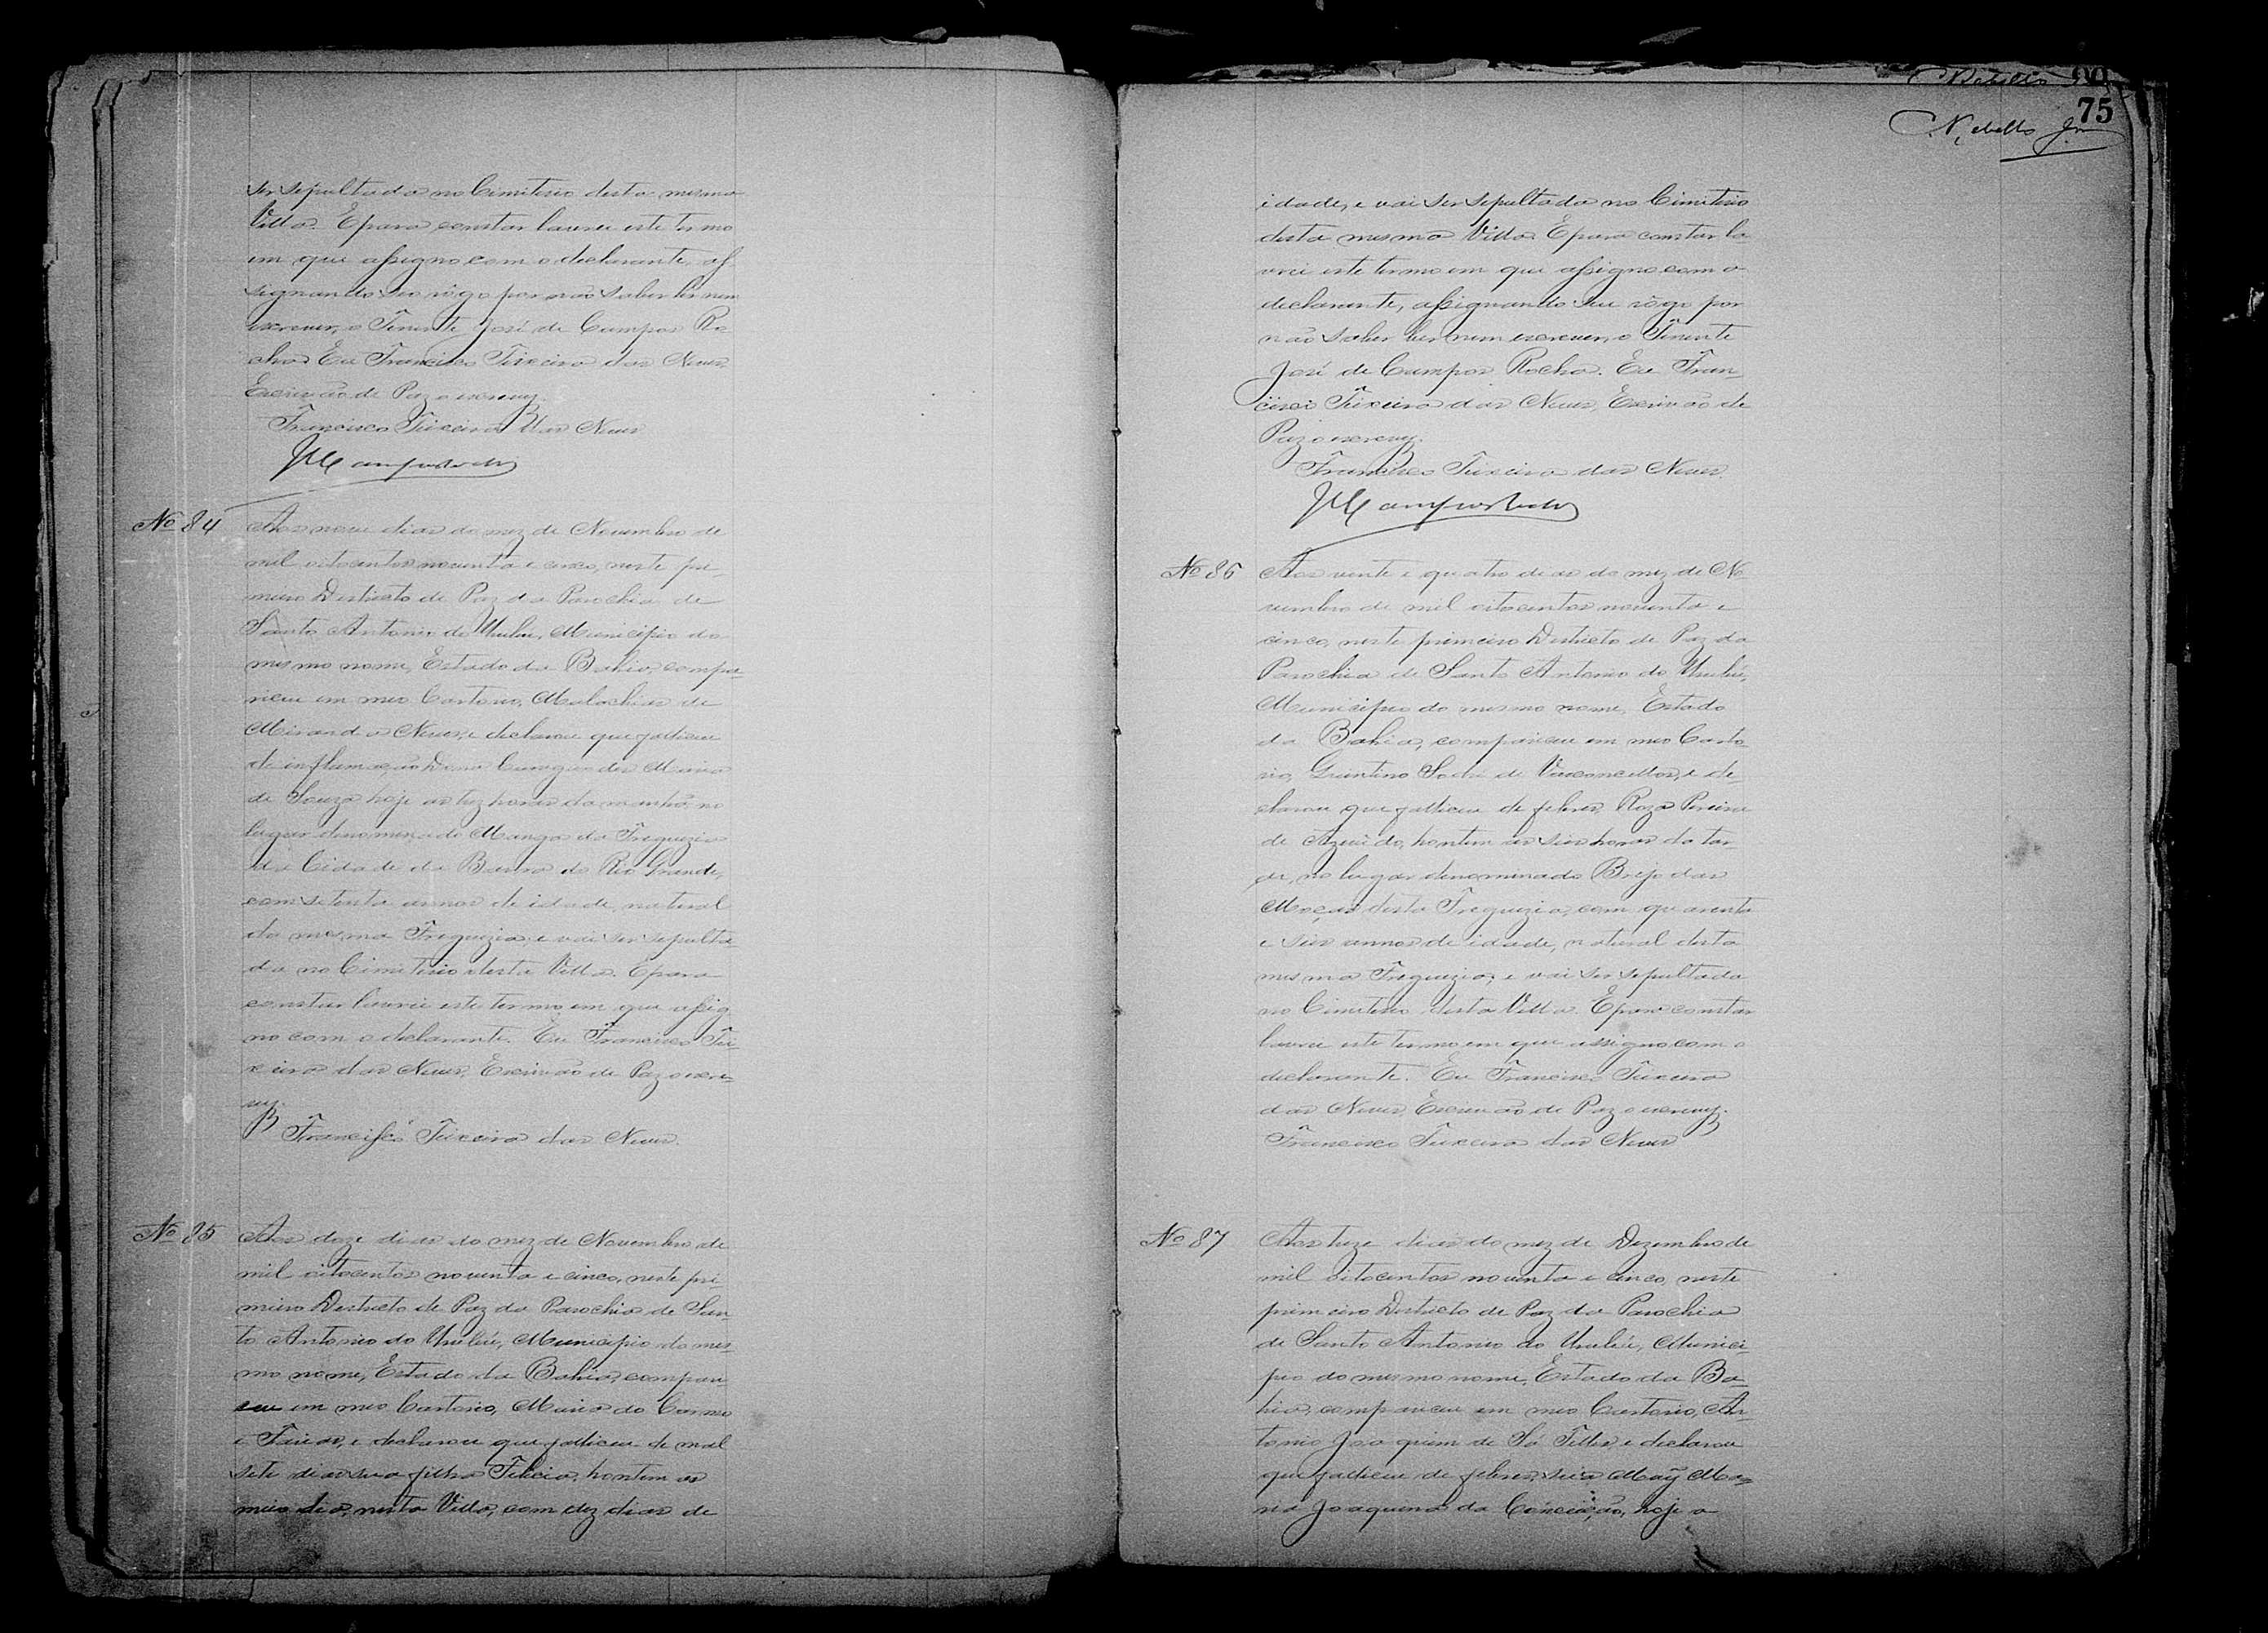 ser sepultada no Cimiterio desta mesma
Villa. E para constar lavrei este termo
em que assigno com o declarante, as-
signando seo rôgo por não saber ler nem
escrever, o Tenente José de Campos Ro-
cha. Eu Francisco Teixeira das Neves
Escrivão de Paz o escrevy.
Francisco Teixeira das Neves
JCCamposRocha
Nº 84
Aos nove dias do mez de Novembro de
mil oitocentos noventa e cinco, neste pri-
meiro Districto de Paz da Parochia de
Santo Antonio do Urubu, Municipio do
mesmo nome, Estado da Bahia, compa-
receu em meo Cartorio, Malachias de
Miranda Neves, e declarou que falliceu
de inflamação Dona Maria
de Souza hoje as trez horas da manhã, no
lugar denominado Manga da Freguezia
da Cidade da Barra do Rio Grande,
com setenta annos de idade, natural
da mesma Freguezia, e vai ser sepulta-
da no Cimiterio desta Villa. E para
constar lavrei este termo em que assig-
no com o declarante. Eu Francisco Tei-
xeira das Neves, Escrivão de Paz o escre-
vy.
Francisco Teixeira das Neves.
Nº 85
Aos doze dias do mez de Novembro de
mil oitocentos noventa e cinco, neste pri-
meiro Districto de Paz da Parochia de San-
to Antonio do Urubú, Municipio do mes-
mo nome, Estado da Bahia, compare-
ceu em meo Cartorio, Maria do Carmo
e declarou que falliceu de mal
sete dias sua filha Felicia, hontem as
meio dia, nesta Villa, com dez dias de
75
Rebello Jr.
idade, e vai ser sepultada no Cimiterio
desta mesma Villa. E para constar la-
vrei este termo em que assigno com o
declarante, assignando seu rôgo por
não saber ler nem escrever, o Tenente
José de Campos Rocha. Eu Fran-
cisco Teixeira das Neves, Escrivão de
Paz o escrevy.
Francisco Teixeira das Neves.
JCCamposRocha
Nº 86
Aos vinte e quatro dias do mez de No-
vembro de mil oitocentos noventa e
cinco, neste primeiro Districto de Paz da
Parochia de Santo Antonio do Urubú,
Municipio do mesmo nome, Estado
da Bahia, compareceu em meo Carto-
rio, de Vasconcellos, e de-
clarou que falliceu de febres, Roza Pereira
de Azevêdo, hontem as seis horas da tar-
de, no lugar denominado Brejo das
Moças desta Freguezia, com quarenta
e seis annos de idade, natural desta
mesma Freguezia, e vai ser sepultada
no Cimiterio desta Villa. E para constar
lavrei este termo em que assigno com o
declarante. Eu Francisco Teixeira
das Neves, Escrivão de Paz o escrevy.
Francisco Teixeira das Neves
Nº 87
Aos treze dias do mez de Dezembro de
mil oitocentos noventa e cinco, neste
primeiro Districto de Paz da Parochia
de Santo Antonio do Urubú, Munici-
pio do mesmo nome, Estado da Ba-
hia, compareceu em meo Cartorio, An-
tonio Joaquim de Sá Telles, e declarou
que falliceu de febres, sua Mãy Ma-
ria Joaquina da Conceição, hoje a